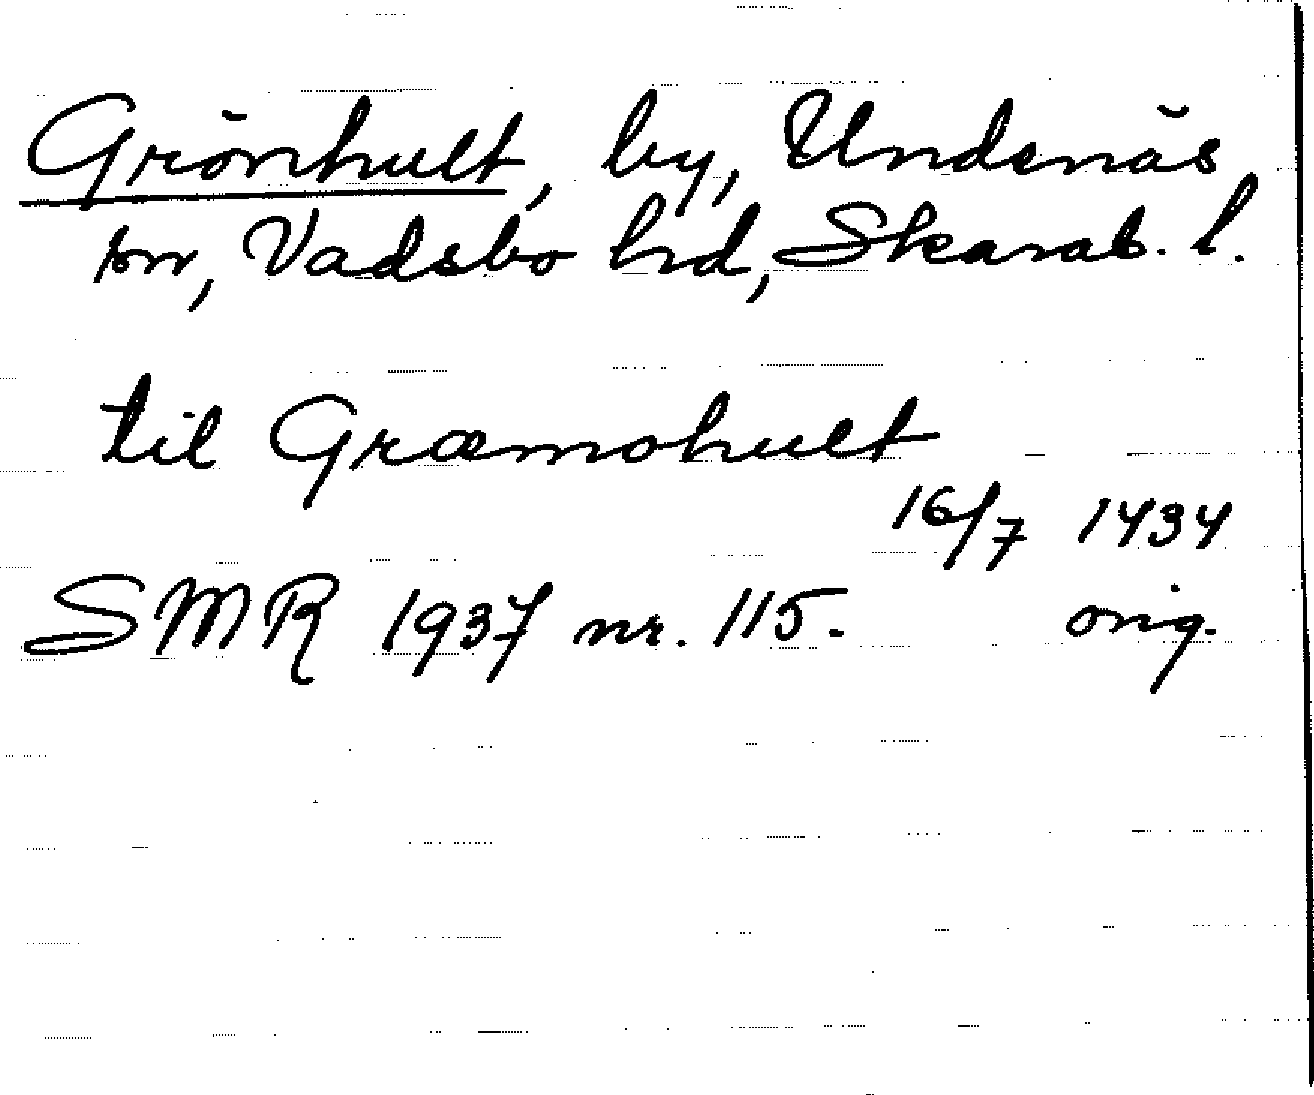 Grönhult, by, Undenäs
sn, Vadsbo hd, Skarab. l.
til Græmohult
16/7 1434
SMR 1937 nr. 115. orig.